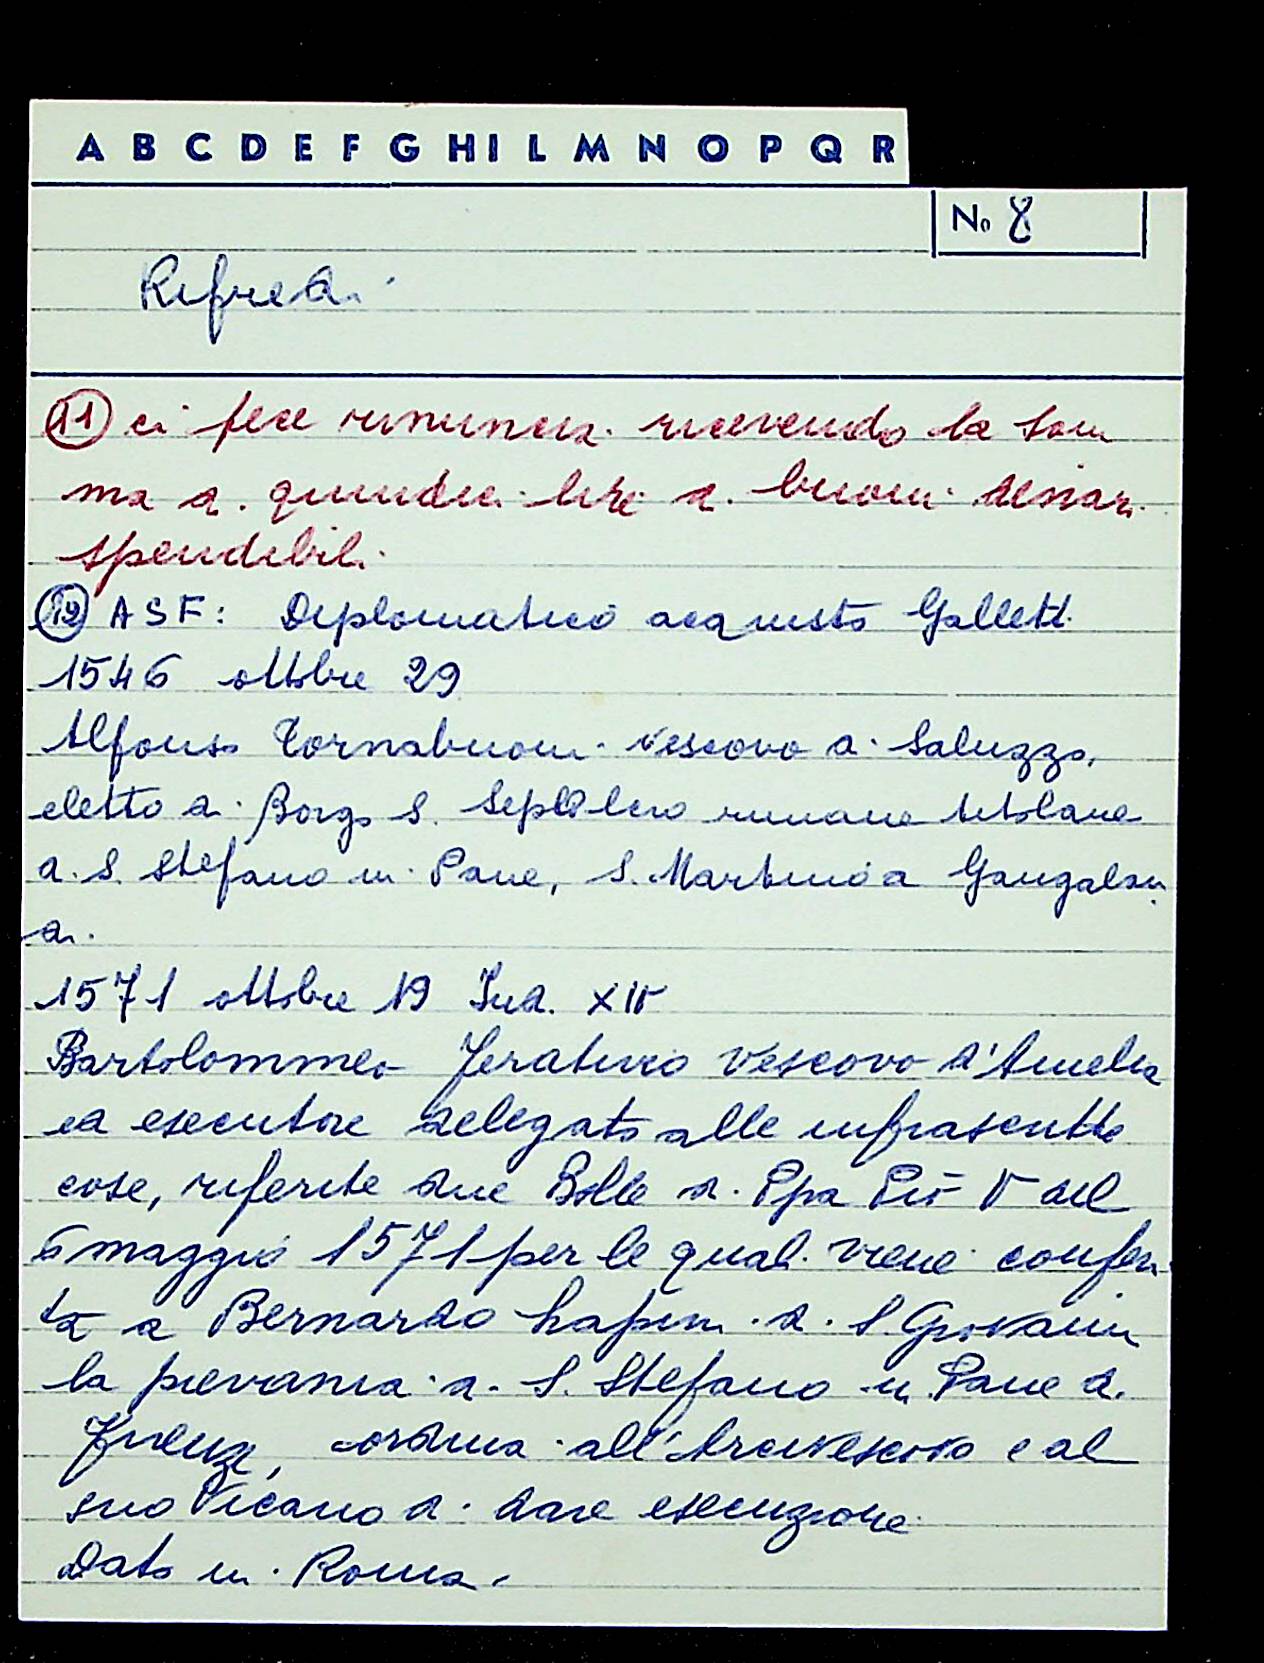 A B C D E F G H I L M N O P Q R
No 8
Rifredi
11 ci fece rinuncia ricevendo la som
ma di quindici lire di buoni denari
spendibili.
12 ASF: Diplomatico acquisto Galletti
1546 ottobre 29
Alfonso Tornabuoni vescovo di Saluzzo,
eletto di Borgo S. Seplolcro rimane titolare
di S. Stefano in Pane, S. Martino a Gangalan
di.
1571 ottobre 19 Ind. XIV
Bartolommeo Feratino Vescovo d'Amelia
ed esecutore delegato alle infrascritte
cose, riferite due Bolle di Ppa Pio V del
6 maggio 1571 per le quali viene conferi
ta a Bernardo di S. Giovanni
la pievania di S. Stefano in Pane di
Firenze, ordina all'Arcivescovo e al
suo Vicario di dare esecuzione
Dato in Roma.